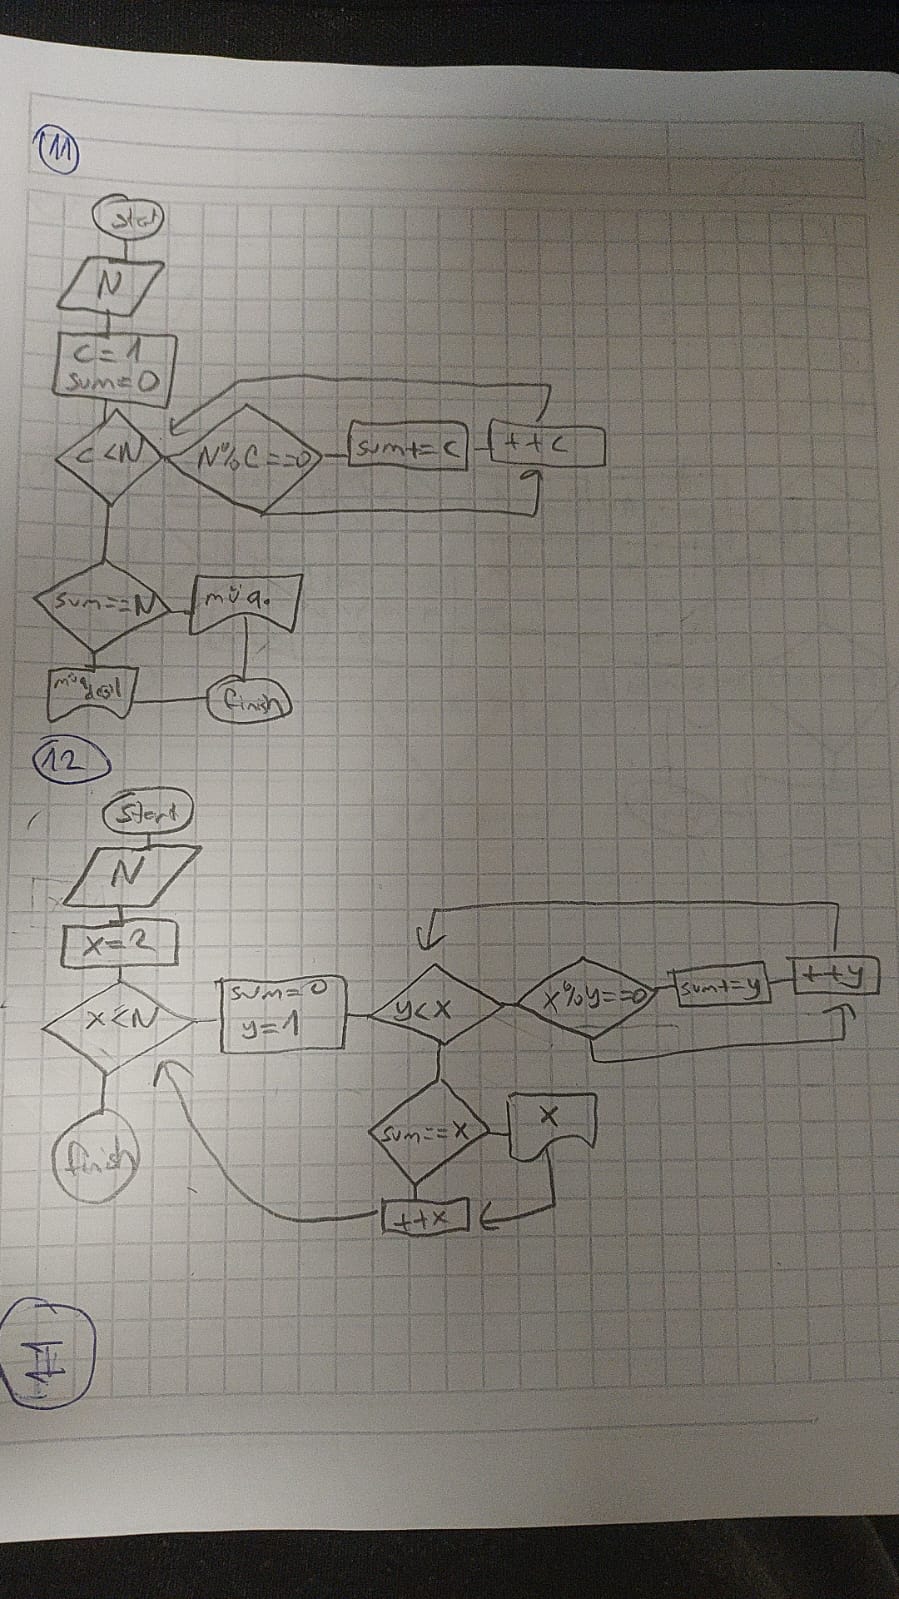 11
Start
N
c = 1
sum = 0
c < N
N % C == 0
sum += c
++c
sum == N
müq.
müq deyil
finish
12
Start
N
x = 2
x < N
sum = 0
y = 1
y < x
x % y == 0
sum += y
++y
sum == x
x
++x
finish